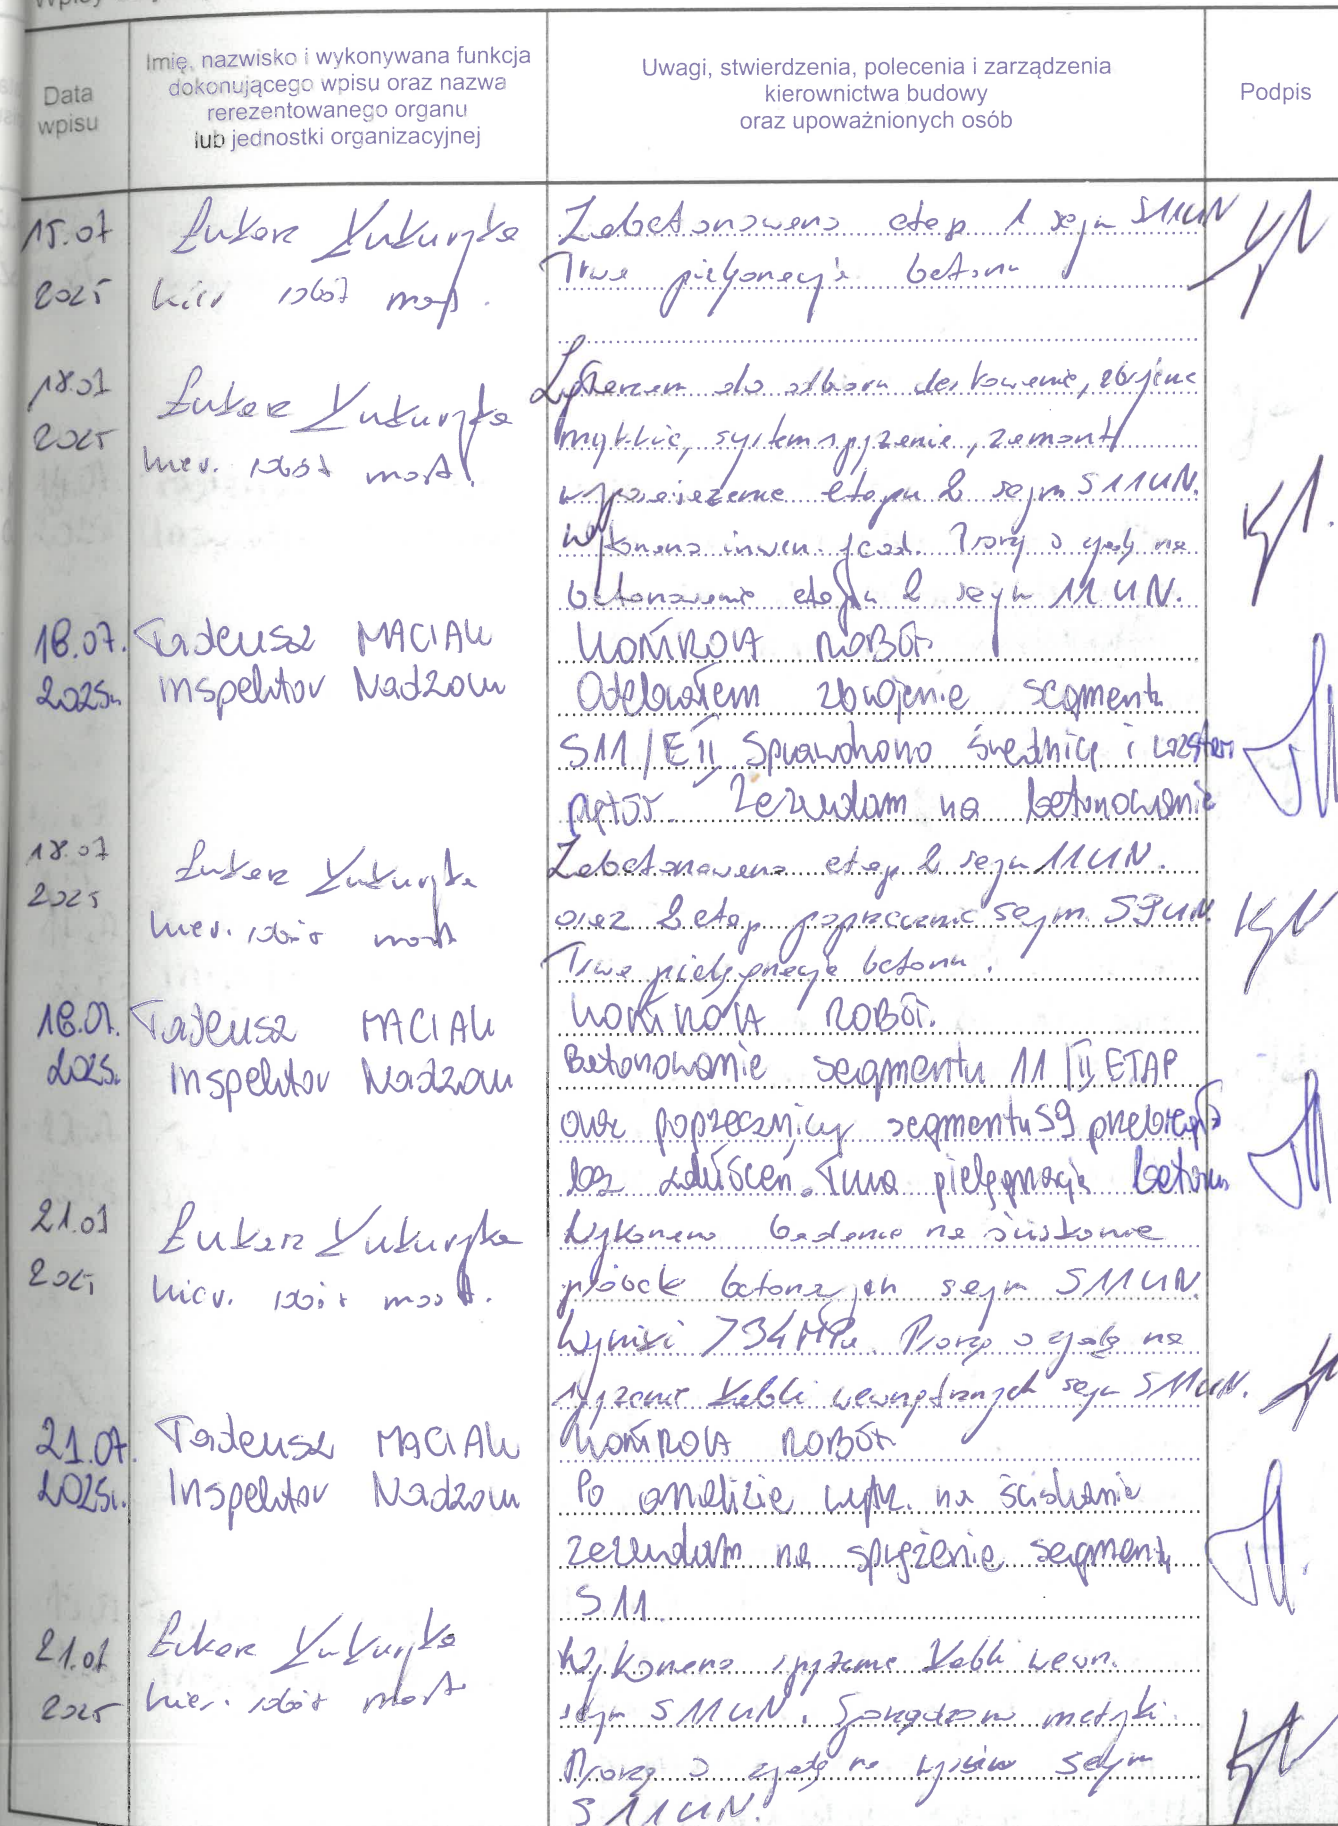 Data
wpisu
Imię, nazwisko i wykonywana funkcja
dokonującego wpisu oraz nazwa
rerezentowanego organu
lub jednostki organizacyjnej
Uwagi, stwierdzenia, polecenia i zarządzenia
kierownictwa budowy
oraz upoważnionych osób
Podpis
15.07
2025
Łukasz Kukuryka
kier robót most.
Zabetonowano etap 1 segm S11UN
Trwa pielęgnacja betonu
18.07
2025
Łukasz Kukuryka
kier. robót most.
Zgłaszam do odbioru deskowanie, zbrojenie
system sprężenie,
etapu 2 segm S11UN.
Wykonano inwen. geod. Proszę o zgodę na
betonowanie etapu 2 segm 11UN.
18.07.
2025r.
Tadeusz MACIAK
Inspektor Nadzoru
KONTROLA ROBÓT.
Odebrałem zbrojenie segmentu
S11/EII Sprawdzono średnicę i rozstaw
prętów. Zezwalam na betonowanie
18.07
2025
Łukasz Kukuryka
kier. robót most
Zabetonowano etap 2 segm 11UN.
oraz 2 etap poprzecznic segm. S9UN.
Trwa pielęgnacja betonu.
18.07.
2025r.
Tadeusz MACIAK
Inspektor Nadzoru
KONTROLA ROBÓT.
Betonowanie segmentu 11/II ETAP
oraz poprzecznicy segmentu S9 przebiegła
bez zakłóceń. Trwa pielęgnacja betonu
21.07
2025
Łukasz Kukuryka
kier. robót most.
Wykonano badanie na ściskanie
próbek betonowych segm S11UN.
Wyniki >34MPa. Proszę o zgodę na
sprężenie kabli wewnętrznych segm S11UN.
21.07.
2025r.
Tadeusz MACIAK
Inspektor Nadzoru
KONTROLA ROBÓT.
Po analizie wytrz. na ściskanie
zezwalam na sprężenie segmentu
S11.
21.07
2025
Łukasz Kukuryka
kier. robót most
Wykonano sprężenie kabli wewn.
segm S11UN. Sporządzono metryki.
Proszę o zgodę na segm
S11UN.